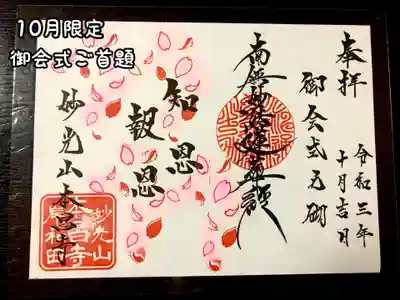 10月限定
御会式ご首題
奉拝
御会式元朝
令和三年
十月吉日
南無妙法蓮華経
知恩
報恩
妙光山本昌寺
妙光山
本昌寺
岸和田